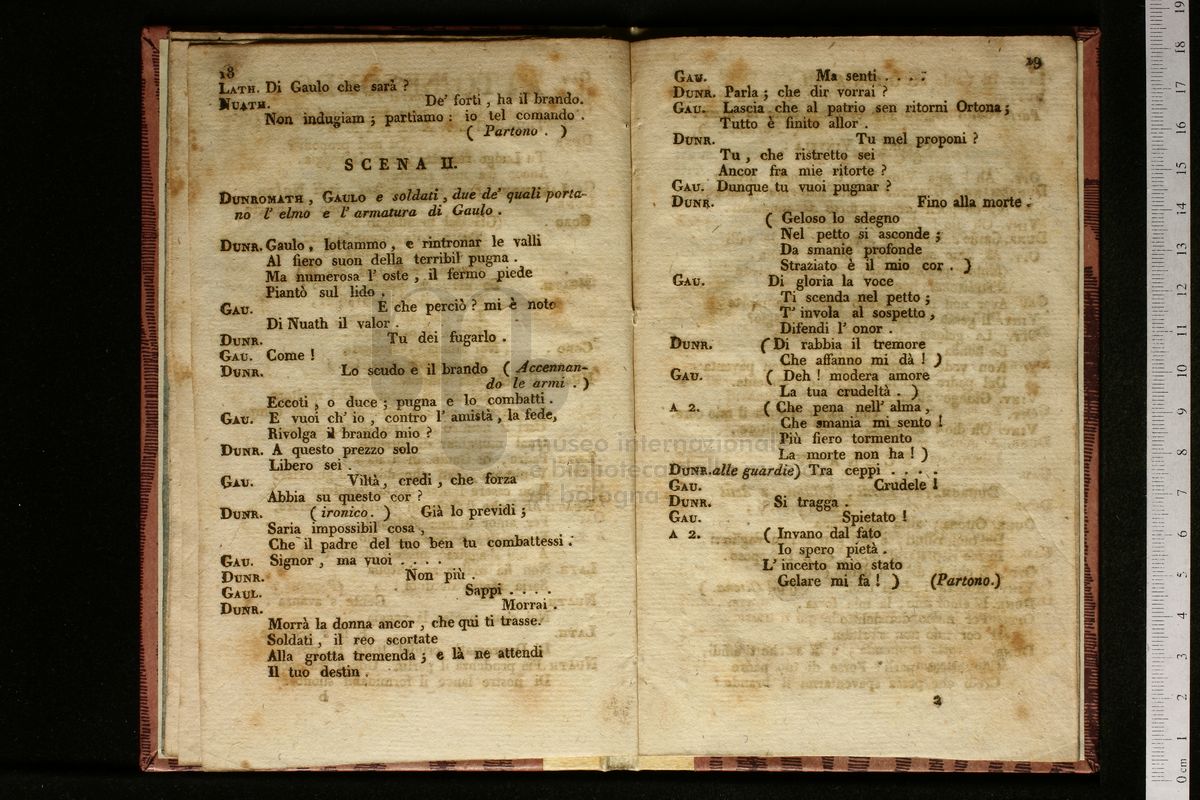 18
LATH. Di Gaulo che sarà ?
NUATH. De' forti , ha il brando.
Non indugiam ; partiamo : io tel comando .
( Partono . )
SCENA II.
DUNROMATH , GAULO e soldati , due de' quali porta-
no l' elmo e l' armatura di Gaulo .
DUNR. Gaulo , lottammo , e rintronar le valli
Al fiero suon della terribil pugna .
Ma numerosa l' oste , il fermo piede
Piantò sul lido .
GAU. E che perciò ? mi è noto
Di Nuath il valor .
DUNR. Tu dei fugarlo .
GAU. Come !
DUNR. Lo scudo e il brando ( Accennan-
do le armi . )
Eccoti , o duce ; pugna e lo combatti .
GAU. E vuoi ch' io , contro l' amistà , la fede,
Rivolga il brando mio ?
DUNR. A questo prezzo solo
Libero sei .
GAU. Viltà , credi , che forza
Abbia su questo cor ?
DUNR. ( ironico. ) Già lo previdi ;
Saria impossibil cosa ,
Che il padre del tuo ben tu combattessi .
GAU. Signor , ma vuoi . . . .
DUNR. Non più .
GAUL. Sappi . . . .
DUNR. Morrai .
Morrà la donna ancor , che qui ti trasse.
Soldati , il reo scortate
Alla grotta tremenda ; e là ne attendi
Il tuo destin .
b
19
GAU. Ma senti . . . .
DUNR. Parla ; che dir vorrai ?
GAU. Lascia che al patrio sen ritorni Ortona ;
Tutto è finito allor .
DUNR. Tu mel proponi ?
Tu , che ristretto sei
Ancor fra mie ritorte ?
GAU. Dunque tu vuoi pugnar ?
DUNR. Fino alla morte .
( Geloso lo sdegno
Nel petto si asconde ;
Da smanie profonde
Straziato è il mio cor . )
GAU. Di gloria la voce
Ti scenda nel petto ;
T' invola al sospetto ,
Difendi l' onor .
DUNR. ( Di rabbia il tremore
Che affanno mi dà ! )
GAU. ( Deh ! modera amore
La tua crudeltà . )
A 2. ( Che pena nell' alma ,
Che smania mi sento !
Più fiero tormento
La morte non ha ! )
DUNR. alle guardie) Tra ceppi . . . .
GAU. Crudele !
DUNR. Si tragga .
GAU. Spietato !
A 2. ( Invano dal fato
Io spero pietà .
L' incerto mio stato
Gelare mi fa ! ) (Partono.)
2
museo internazionale
e biblioteca
di bologna
0 cm 1 2 3 4 5 6 7 8 9 10 11 12 13 14 15 16 17 18 19